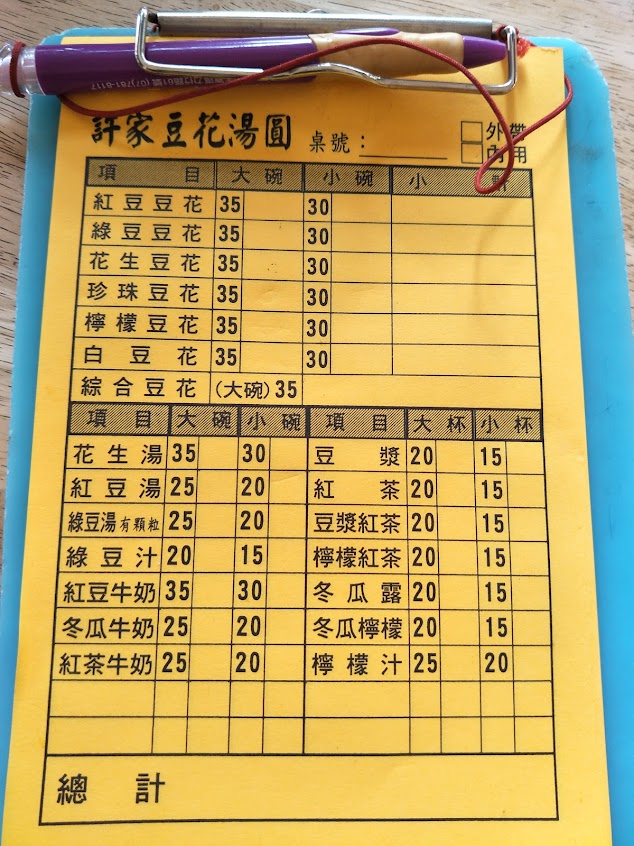 (07)781-8117
許家豆花湯圓 桌號：
外帶
內用
項目 大碗 小碗 小計
紅豆豆花 35 30
綠豆豆花 35 30
花生豆花 35 30
珍珠豆花 35 30
檸檬豆花 35 30
白豆花 35 30
綜合豆花 (大碗)35
項目 大碗 小碗 項目 大杯 小杯
花生湯 35 30 豆漿 20 15
紅豆湯 25 20 紅茶 20 15
綠豆湯有顆粒 25 20 豆漿紅茶 20 15
綠豆汁 20 15 檸檬紅茶 20 15
紅豆牛奶 35 30 冬瓜露 20 15
冬瓜牛奶 25 20 冬瓜檸檬 20 15
紅茶牛奶 25 20 檸檬汁 25 20
總計